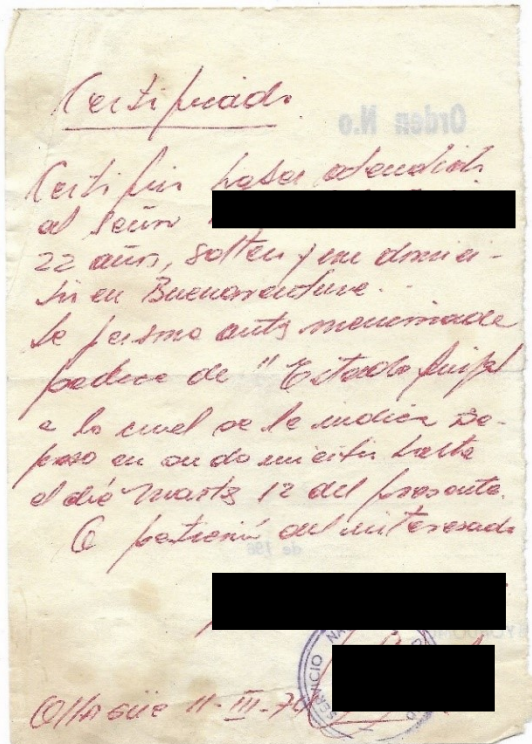 Certificado
Orden N.o
Certifico haber atendido
al señor
22 años, soltero y con domici-
lio en Buenaventura.
La persona antes mencionada
padece de "Estado Gripal"
a lo cual se le indica re-
poso en su domicilio hasta
el día Martes 12 del presente.
A petición del interesado
de 196
SERVICIO NA
Ollagüe 11-III-74